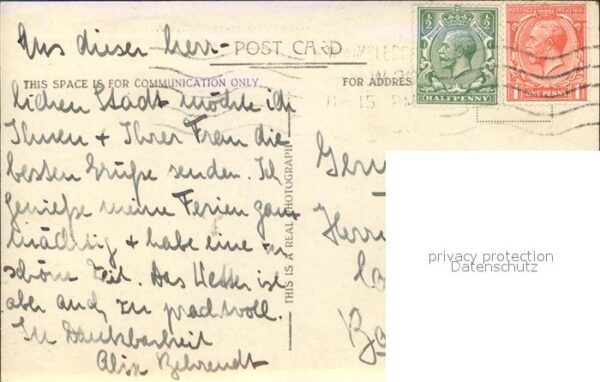 Aus dieser herr-
POST CARD
THIS SPACE IS FOR COMMUNICATION ONLY
FOR ADDRES
lichen Stadt möchte ich
Ihnen + Ihrer Frau die
besten Grüße senden. Ich
genieße meine Ferien ganz
mächtig + habe eine
schöne Zeit. Das Wetter ist
aber auch zu prachtvoll.
In Dankbarkeit
Alix Behrendt
THIS IS A REAL PHOTOGRAPH
½ ½
HALFPENNY
POSTAGE REVENUE
1 1
ONE PENNY
15 PM
Herr
privacy protection
Datenschutz